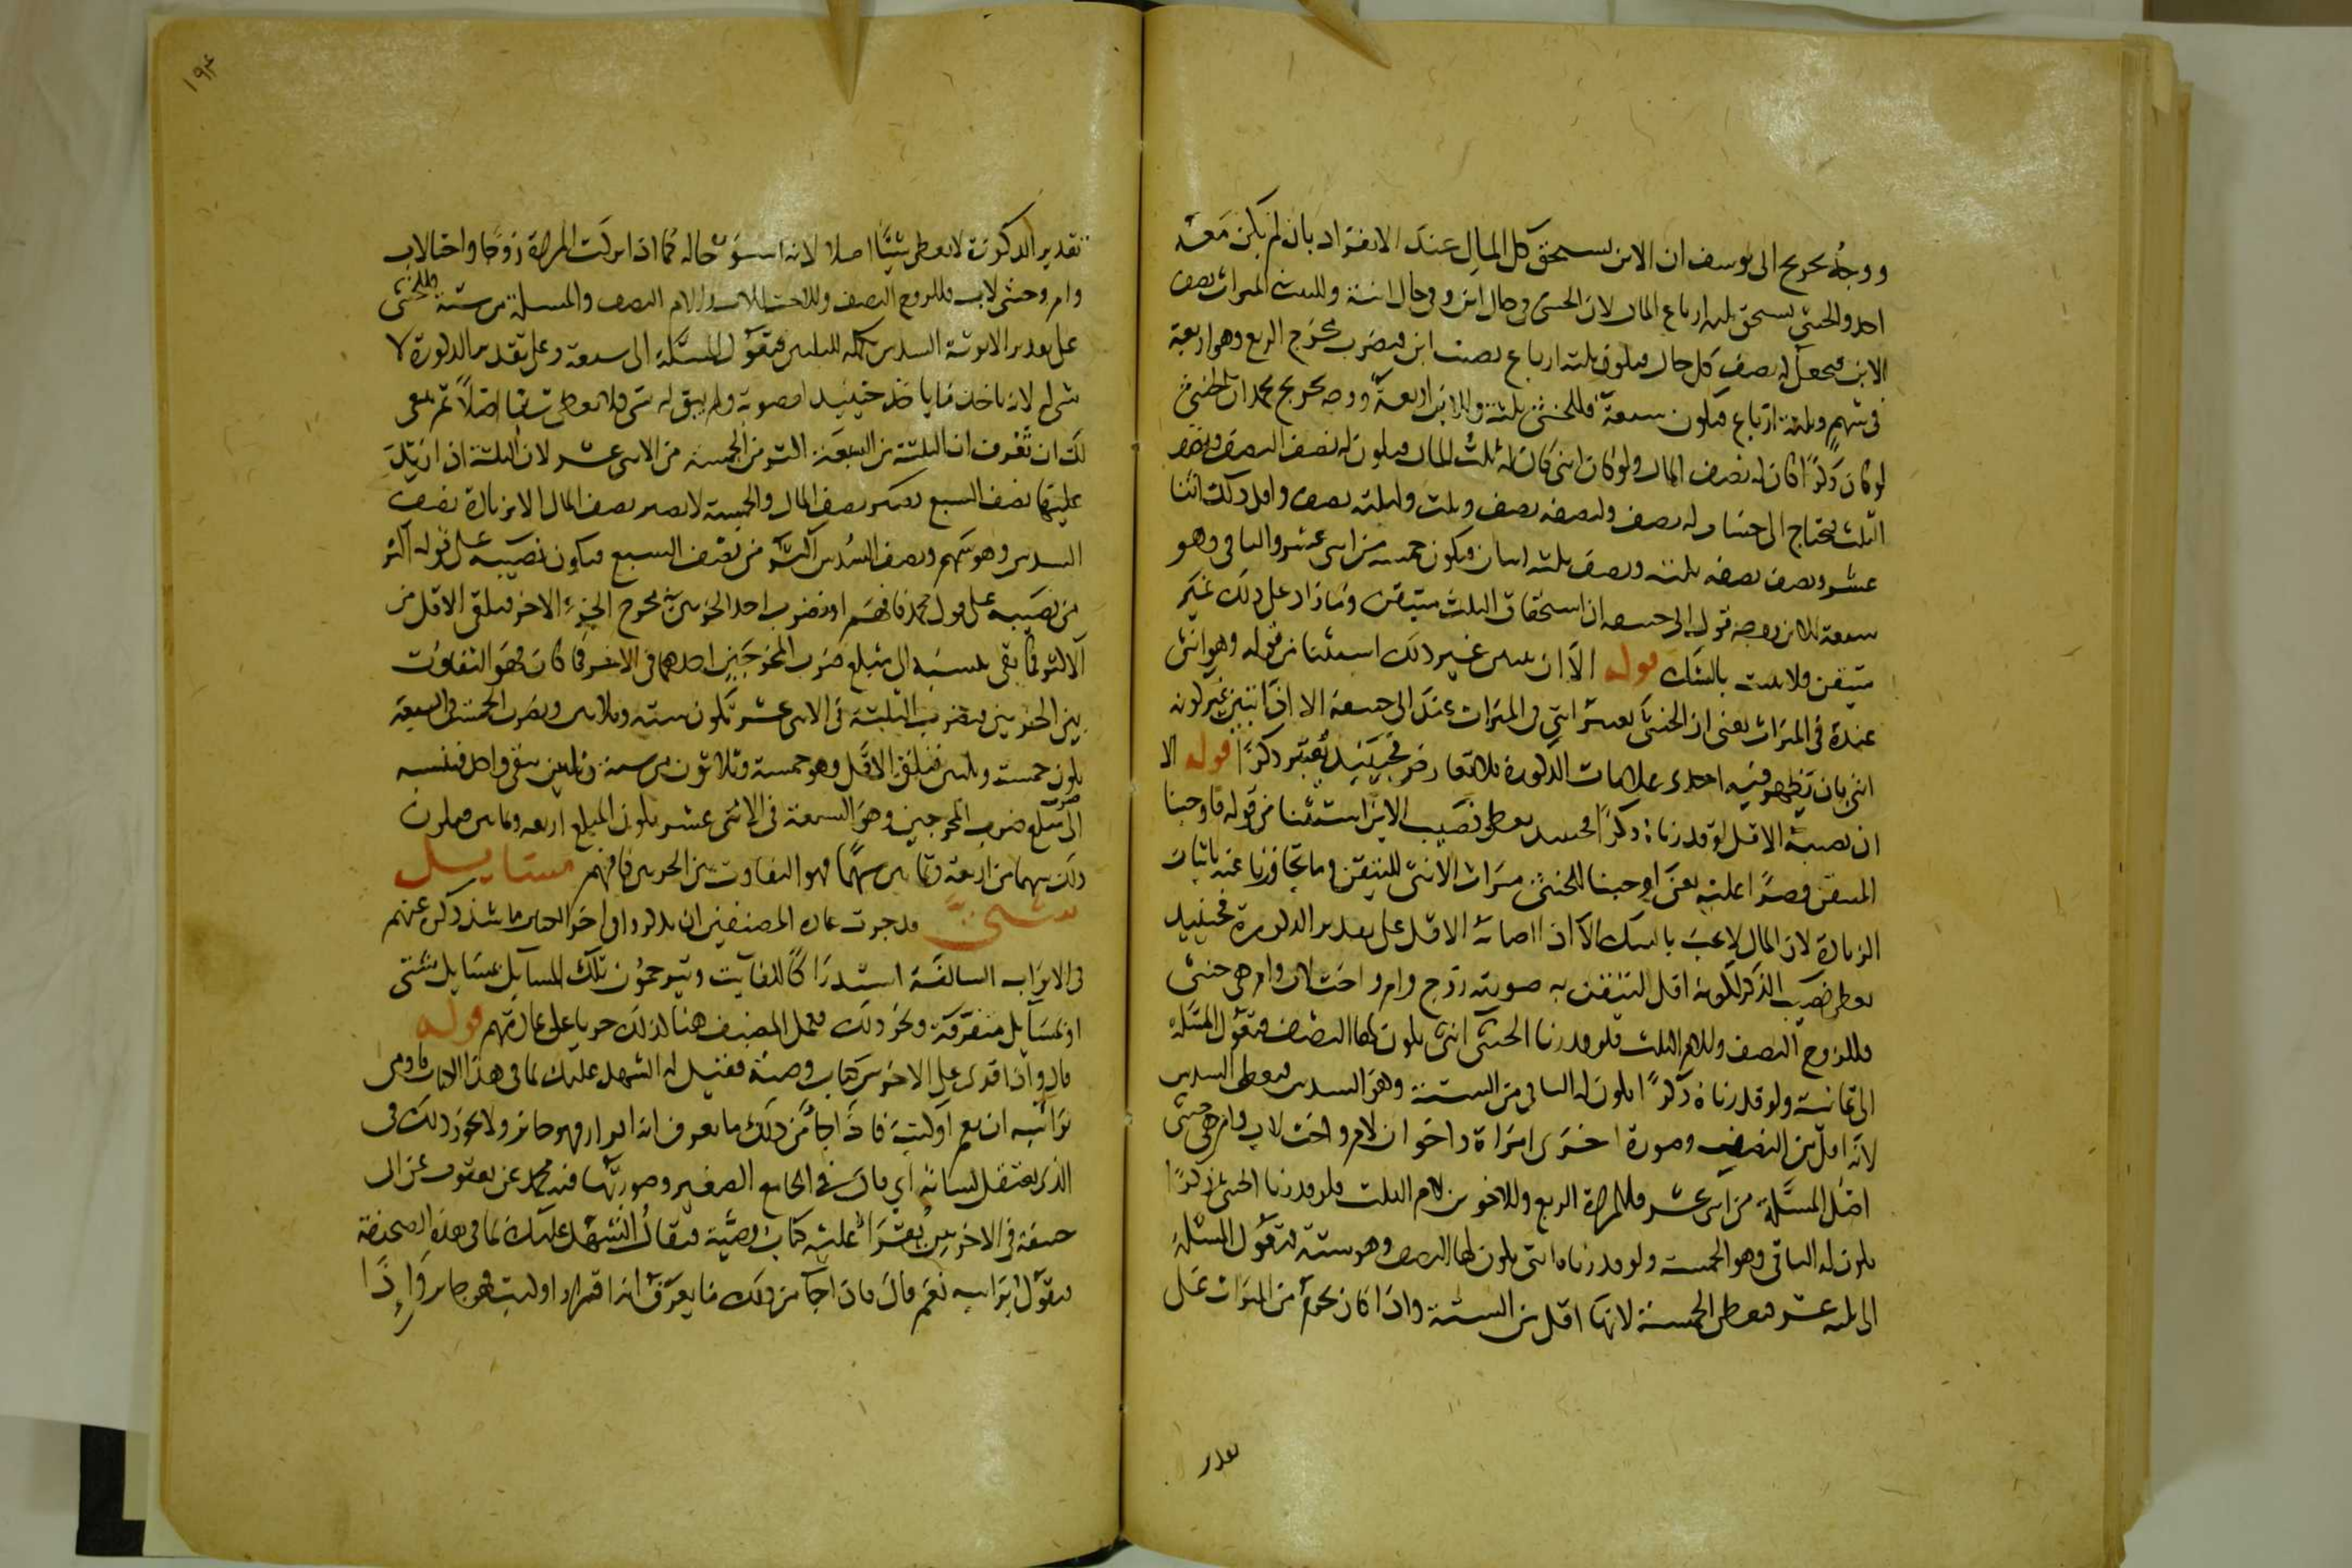 ووجه تخريج ابى يوسف ان الابن يستحق كل المال عند الانفراد بان لم يكن معه
احد والخنثى يستحق ثلثه ارباع المال لان الخنثى فى حال ابن وفى حال ابنة وللبنت فى الميراث نصف
الابن فيجعل له نصف كل حال فيكون ثلثه ارباع نصيب ابن فيضرب مخرج الربع وهو اربعة
فى سهم وثلثة ارباع فيكون سبعة فللخنثى ثلثة وللابن اربعة ووجه تخريج محمد ان الخنثى
لو كان ذكرا كان له نصف المال ولو كان انثى كان له ثلث المال فيكون له نصف النصف ونصف
الثلث فيحتاج الى حساب له نصف ولنصفه نصف وثلث ولثلثه نصف واقل ذلك اثنا
عشر ونصف نصفه ثلثة ونصف ثلثه اثنان فيكون خمسة من اثنى عشر والباقى وهو
سبعة للابن ووجه قول ابى حنيفة ان استحقاق الثلث متيقن وما زاد على ذلك غير
متيقن فلا يثبت بالشك قوله الا ان يتبين غير ذلك استثنا من قوله وهو انثى
عنده فى الميراث يعنى ان الخنثى يعتبر انثى فى الميراث عند ابى حنيفة الا اذا تبين غير كونه
انثى بان يظهر فيه احدى علامات الذكورة بلا تعارض فحينئذ يعتبر ذكرا قوله الا
ان نصيبه الاقل لو قدرناه ذكرا فحينئذ يعطى نصيب الابن استثنا من قوله فاوجبنا
المتيقن قصرا عليه يعنى اوجبنا للخنثى ميراث الانثى للتيقن وما تجاوزنا عنه باثبات
الزيادة لان المال لا يجب بالشك الا اذا اصابه الاقل على تقدير الذكورة فحينئذ
يعطى نصيب الذكر لكونه اقل للتيقن به صورته زوج وام واخت لاب وام هى خنثى
فللزوج النصف وللام الثلث فلو قدرنا الخنثى انثى يكون لها النصف فتعول المسئلة
الى ثمانية ولو قدرناه ذكرا يكون له الباقى من الستة وهو السدس فيعطى السدس
لانه اقل من النصف وصورة اخرى امراة واخوان لام واخت لاب وام هى خنثى
اصل المسئلة من اثنى عشر فللمراة الربع وللاخوين لام الثلث فلو قدرنا الخنثى ذكرا
يكون له الباقى وهو الخمسة ولو قدرناه انثى يكون لها النصف وهو ستة فتعول المسئلة
الى ثلثه عشر فيعطى الخمسة لانها اقل من الستة واذا كان يحرم من الميراث على
تقدير
١٩٤
تقدير الذكورة لا يعطى شيئا اصلا لانه اسوء حاله كما اذا تركت المراة زوجا واختا لاب
وام وخنثى لاب فللزوج النصف وللاخت للاب والام النصف والمسئلة من ستة وللخنثى
على تقدير الانوثة السدس تكملة للثلثين فتعول المسئلة الى سبعة وعلى تقدير الذكورة لا
شى له لانه ياخذ ما ياخذ حينئذ عصوبة ولم يبق له شى فلا يعطى شيئا اصلا ثم ينبغى
لك ان تعرف ان الثلثة من السبعة اكثر من الخمسة من الاثنى عشر لان الثلثة اذا زيد
عليها نصف السبع تصير نصف المال والخمسة لا تصير نصف المال الا بزيادة نصف
السدس وهو سهم ونصف السدس اكثر من نصف السبع فيكون نصيبه على قوله اكثر
من نصيبه على قول محمد فافهم او تضرب احد الجزئين فى مخرج الجزء الاخر فيلقى الاقل من
الاكثر فما بقى بنسبة الى مبلغ ضرب المخرجين احدهما فى الاخر فما كان فهو التفاوت
بين الجزئين فتضرب الثلثة فى الاثنى عشر تكون ستة وثلثين وتضرب الخمسة فى السبعة
يكون خمسة وثلثين فيلقى الاقل وهو خمسة وثلاثون من ستة وثلثين يبقى واحد فتنسبه
الى مبلغ ضرب المخرجين وهو السبعة فى الاثنى عشر يكون المبلغ اربعة وثمانين فيكون
ذلك سهما من اربعة وثمانين سهما فهو التفاوت بين الجزئين فافهم مسايل
شتى قد جرت عادة المصنفين ان يذكروا فى اخر الكتاب ما شذ ذكره عنهم
فى الابواب السالفة استدراكا للفائت ويترجمون تلك المسايل بمسايل شتى
او بمسايل متفرقة ونحو ذلك فعمل المصنف هنا كذلك جريا على عادتهم قوله
قال واذا قرى على الاخرس كتاب وصية فقيل له اتشهد عليك بما فى هذا الكتاب فاومى
براسه ان نعم او كتب فاذا جا من ذلك ما يعرف انه اقرار فهو جائز ولا يجوز ذلك فى
الذى يعتقل لسانه اى قال فى الجامع الصغير وصورتها فيه محمد عن يعقوب عن ابى
حنيفة فى الاخرس يقرا عليه كتاب وصية فيقال اتشهد عليك بما فى هذه الصحيفة
فيقول براسه نعم قال فاذا جا من ذلك ما يعرف انه اقرار او كتب فهو جائز واذا